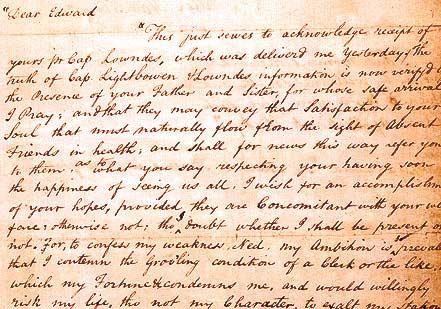 "Dear Edward
"This just serves to acknowledge receipt of
yours pr Cap. Lowndes, which was deliverd me Yesterday. The
truth of Cap. Lightbowen & Lowndes information is now verify'd
the Presence of your Father and Sister, for whose safe arrival
I Pray; and that they may convey that Satisfaction to your
Soul that must naturally flow from the sight of Absent
Friends in health; and shall for news this way refer you
to them. as to what you say respecting your having soon
the happiness of seeing us all, I wish for an accomplish
of your hopes, provided they are Concomitant with your we
fare; otherwise not; tho' I doubt whether I shall be present or
not. For, to confess my weakness, Ned, my Ambition is prevale
that I contemn the Grov'ling condition of a Clerk or the like
which my Fortune &c condemns me, and would willingly
risk my life, tho not my Character, to exalt my Station